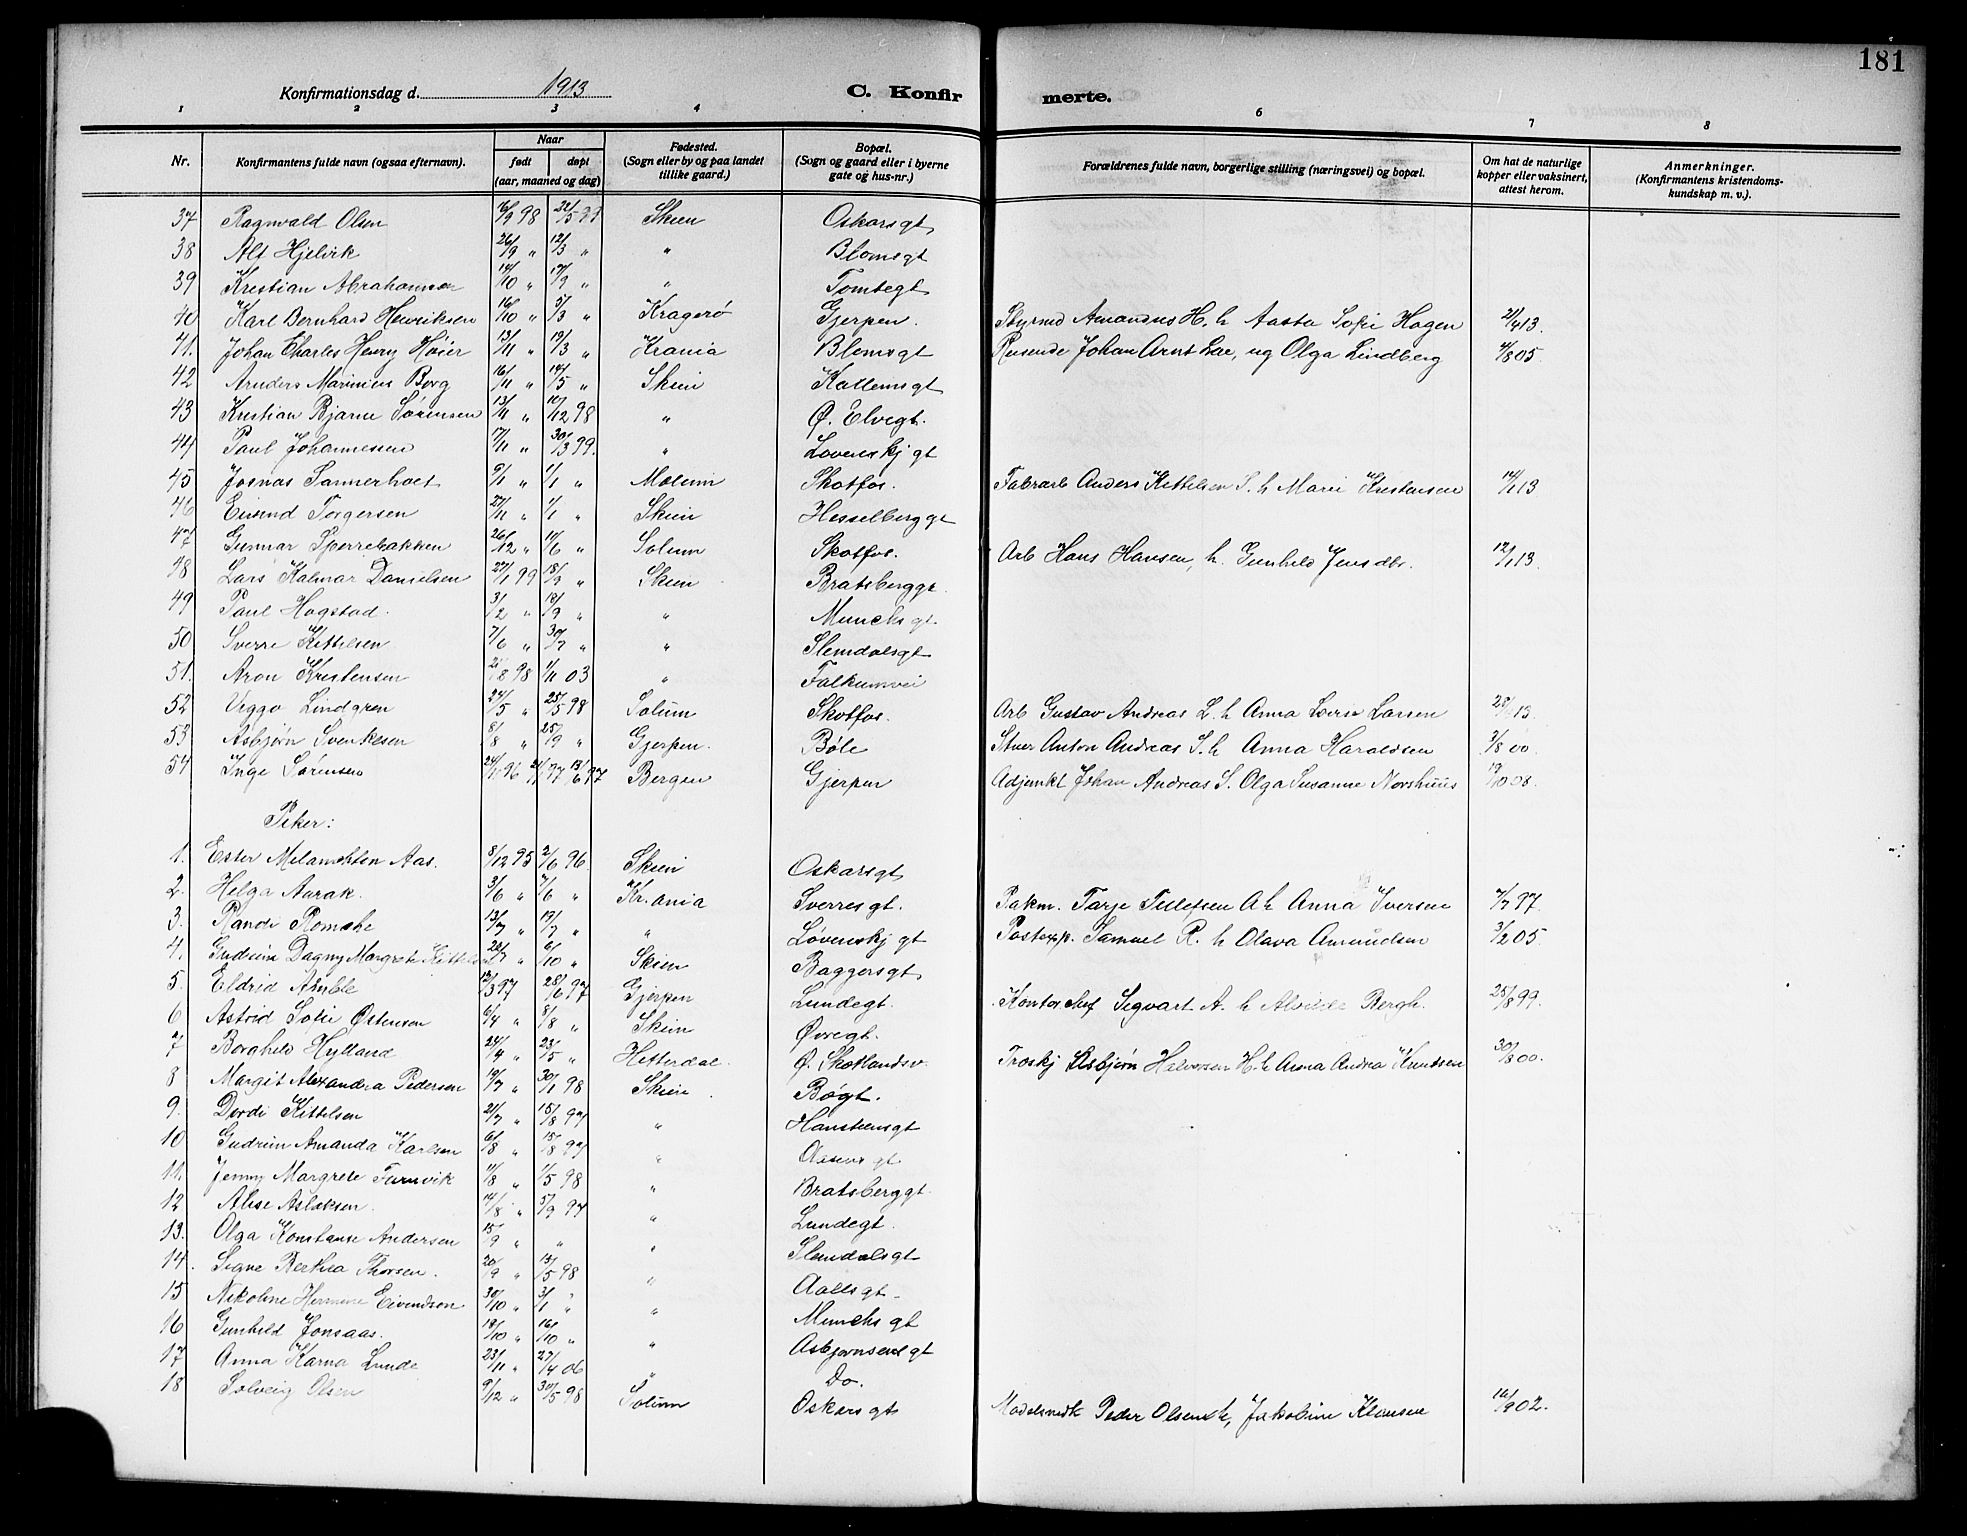 181
Konfirmationsdag d. 1913 C. Konfirmerte.
1 2 3 4 5 6 7 8
Nr. Konfirmantens fulde navn (ogsaa efternavn). Naar født døpt (aar, maaned og dag) Fødested. (Sogn eller by og paa landet tillike gaard.) Bopæl. (Sogn og gaard eller i byerne gate og hus-nr.) Forældrenes fulde navn, borgerlige stilling (næringsvei) og bopæl. Om hat de naturlige kopper eller vaksinert, attest herom. Anmerkninger. (Konfirmantens kristendomskundskap m. v.).
37 Ragnvald Olsen 16/9 98 Skien Oskarsgt
38 Alf Hjelvik 26/9 " 12/3 " " Blomsgt
39 Kristian Abrahamsen 14/10 " 17/9 " " Tomtegt
40 Karl Bernhard Henriksen 16/10 " 5/3 " Kragerø Gjerpen. Styrmd Amandus H. h Aasta Sofie Hagen 21/4 13.
41. Johan Charles Henry Høier 13/11 " 19/3 " Krania Blomsgt Reisende Johan Arnt ug Olga Lindberg 4/8 05.
42 Anders Marinius Borg 16/11 " 14/5 " Skien Kallemsgt
43 Kristian Bjarne Sørensen 13/11 " 10/12 98 " Ø. Elvegt.
44 Paul Johannessen 17/11 " 30/3 99. " Løvenskj gt
45 Josnas Sannerholt 9/1 " 1/1 " Molum Skotfos. Fabrarb Anders Kittelsen S. h Marie Kristensen 14/1 13
46 Eivind Torgersen 27/11 " 1/1 " Skien Hesselberggt
47 Gunnar Sperrebakken 26/12 " 11/6 " Solum Skotfos. Arb Hans Hansen, h. Gunhild Jensdtr. 12/1 13.
48 Lars Kalmar Danielsen 27/1 99 18/9 " Skien Bratsberggt.
49 Paul Hogstad. 3/2 " 18/9 " " Munchsgt.
50 Sverre Kittelsen 7/6 " 30/7 " " Slemdalsgt
51. Aron Kristensen 21/8 98 1/11 03 " Falkumvei
52 Viggo Lindgren 24/5 " 25/5 98 Solum Skotfos. Arb Gustav Andreas L. h Anna Larsen 13.
53 Asbjørn Svenkesen 8/8 " 25/9 " Gjerpen. Bøle Stuer Anton Andreas S. h Anna Haraldsen 3/8 00.
54 Inge Sørensen 96 13/6 97 Bergen Gjerpen Adjunkt Johan Andreas S. Olga Susanne Norshuus 19/10 08.
Piker:
1. Ester Melanchton Aas. 8/12 95 2/6 96. Skien Oskarsgt
2. Helga Aarak. 3/6 " 7/6 " Kr.ania Sverresgt. Pakm. Tarje Tellefsen A h Anna Iversen 7/7 97.
3. Randi Romske 13/7 " 19/7 " " Løvenskj gt Postexp. Samuel R. h Olava Amundsen 3/2 05.
4. Gudrun Dagny Margrete Kittels 20/7 " 6/10 " Skien Baggersgt
5. Eldrid Amble 12/3 97 28/6 97 Gjerpen Lundegt. Kontorchef Sigvart A. h Alvilde Bergh. 25/8 99.
6 Astrid Sofie Østensen 6/4 " 8/8 " Skien Øvregt.
7 Borghild Hylland 24/4 " 23/5 " Hitterdal. Ø. Skotlandsv. Troskj Asbjørn Halvorsen H. h Anna Andrea Knudsen 30/8 00.
8 Margit Alexandra Pedersen 19/7 " 30/1 98 Skien Bøgt.
9. Dordi Kittilsen 21/7 " 15/8 97 " Hansteensgt
10. Gudrun Amanda Karlsen 6/8 " 15/8 97 " gt
11. Jenny Margrete Furuvik 11/8 " 1/5 98 " Bratsberggt.
12 Alise Aslaksen. 14/8 " 5/9 97 " Lundegt.
13. Olga Konstanse Andersen 15/9 " " " Slemdalsgt
14. Signe Berthea Thorsen. 20/9 " 15/5 98 " Aallsgt
15 Nikoline Hermine Eivendsen 30/10 " 3/1 " " Munchs gt
16 Gunhild Jonsaas. 18/10 " 16/10 " " Asbjørnsensgt
17 Anna Karna Lunde 23/11 " 27/4 06 " Do.
18 Solveig Olsen 9/12 " 30/5 98 Solum Oskarsgt Modelsnedk Peder Olsen h, Jakobine Klausen 16/9 02.